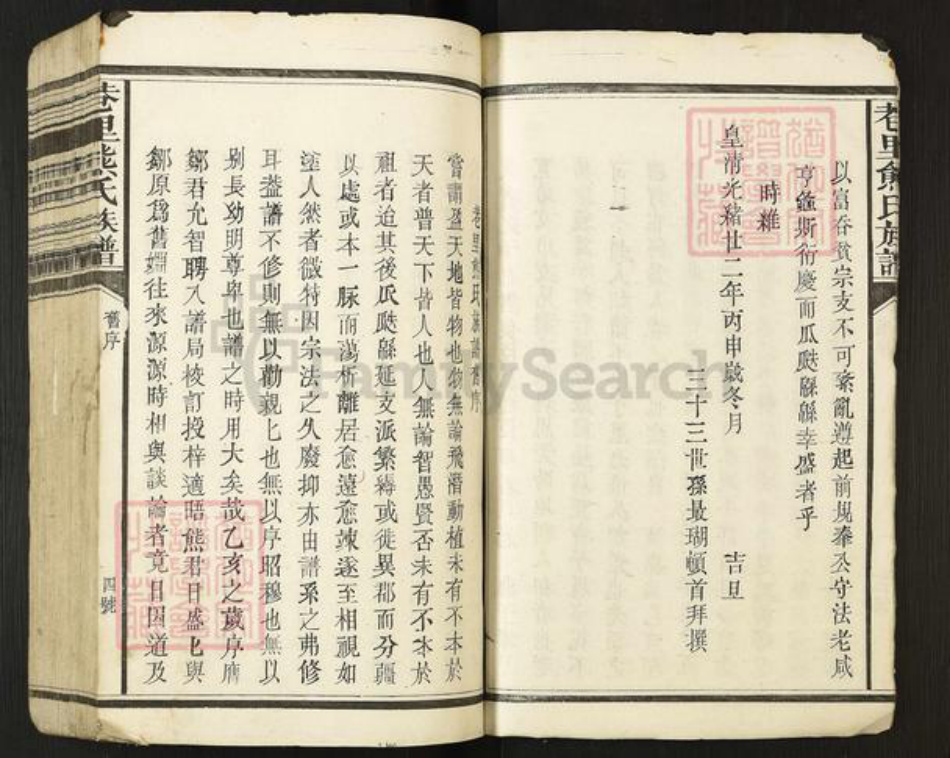 巷里熊氏族譜
以富吞貧宗支不可紊亂遵起前規秦公守法老咸
亨螽斯衍慶而瓜瓞緜緜幸盛者乎
時維
皇清光緒廿二年丙申歲冬月 吉旦
三十三世孫最瑚頓首拜撰
巷里熊氏族譜舊序
嘗謂盈天地皆物也物無論飛潛動植未有不本於
天者普天下皆人也人無論智愚賢否未有不本於
祖者迨其後瓜瓞緜延支派繁衍或徙異郡而分疆
以處或本一脉而蕩析離居愈遠愈竦遂至相視如
塗人然者微特因宗法之久廢抑亦由譜系之弗修
耳盖譜不修則無以勸親匕也無以序昭穆也無以
别長幼明尊卑也譜之時用大矣哉乙亥之歲序膺
鄒君允智聘入譜局校訂授梓適晤熊君日盛匕與
鄒原爲舊姻往來源源時相與談論者竟日因道及
巷里熊氏族譜
舊序
四號
FamilySearch